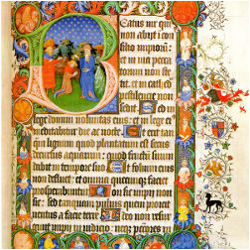 Beatus vir qui
non abiit i con
silio impiorum:
et in via pecca
torum non ste
tit: et in cathed
non
sedit Sed in
lege domini voluntas eius: et in lege ei
meditabitur die ac nocte. Et erit tan
quam lignum quod plantatum est secus
decursus aquarum: quod fructum suum
dabit in tempore suo. Et folium
eius non defluet: et omnia quecumque faciet
prosperabuntur Non sic impii non
sic: sed tanquam pulvis quem proicit
ventus a facie terre Ideo non resur
impii in iudicio: neque peccatores in